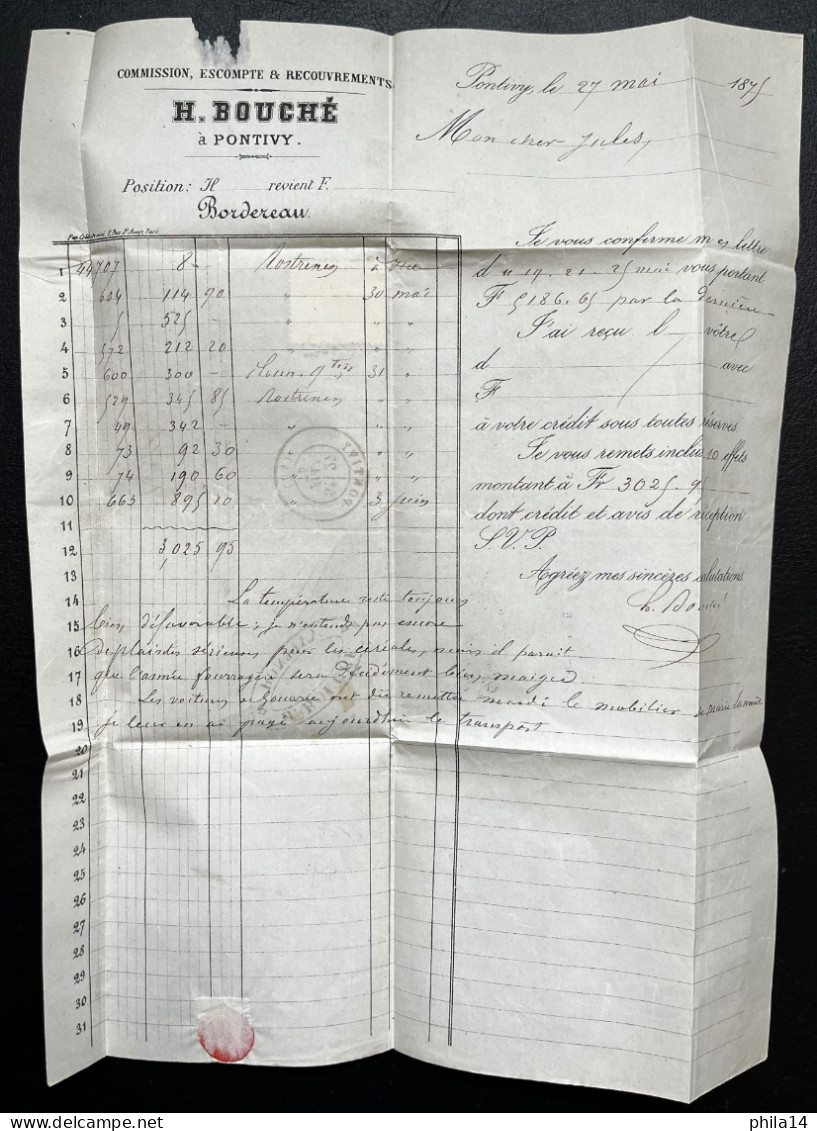 COMMISSION, ESCOMPTE & RECOUVREMENTS.
H. BOUCHÉ
à PONTIVY.
Position: Il revient F.
Bordereau.
Pontivy, le 27 mai 1875
Mon cher Jules,
1 44707 8 – Rostrenen à vue
2 604 114 90 " 30 mai
3 5 525 " " "
4 572 212 20 " " "
5 600 300 – 31 "
6 529 345 85 Rostrenen " "
7 49 342 – " " "
8 73 92 30 " " "
9 74 190 60 " " "
10 663 895 10 " 3 juin
11
12 3,025 95
13
Je vous confirme mes lettre
du 19. 21. 25 mai vous portant
F 5186.65 par la dernière
J'ai reçu l vôtre
d avec
F
à votre crédit sous toutes réserves
Je vous remets inclus 10 effets
montant à Fr 3025.9
dont crédit et avis de réception
S.V.P.
Agréez mes sincères salutations
h. Bouché
PONTIVY
14 La température reste toujours
15 bien défavorable; je n'entends pas encore
16 de plaintes sérieuses pour les céréales, mais il parait
17 que l'année fourragère sera bien maigre
18 Les voitures ont dû remettre mardi le mobilier de
19 je leur en ai payé aujourd'hui le transport
20
21
22
23
24
25
26
27
28
29
30
31
phila14